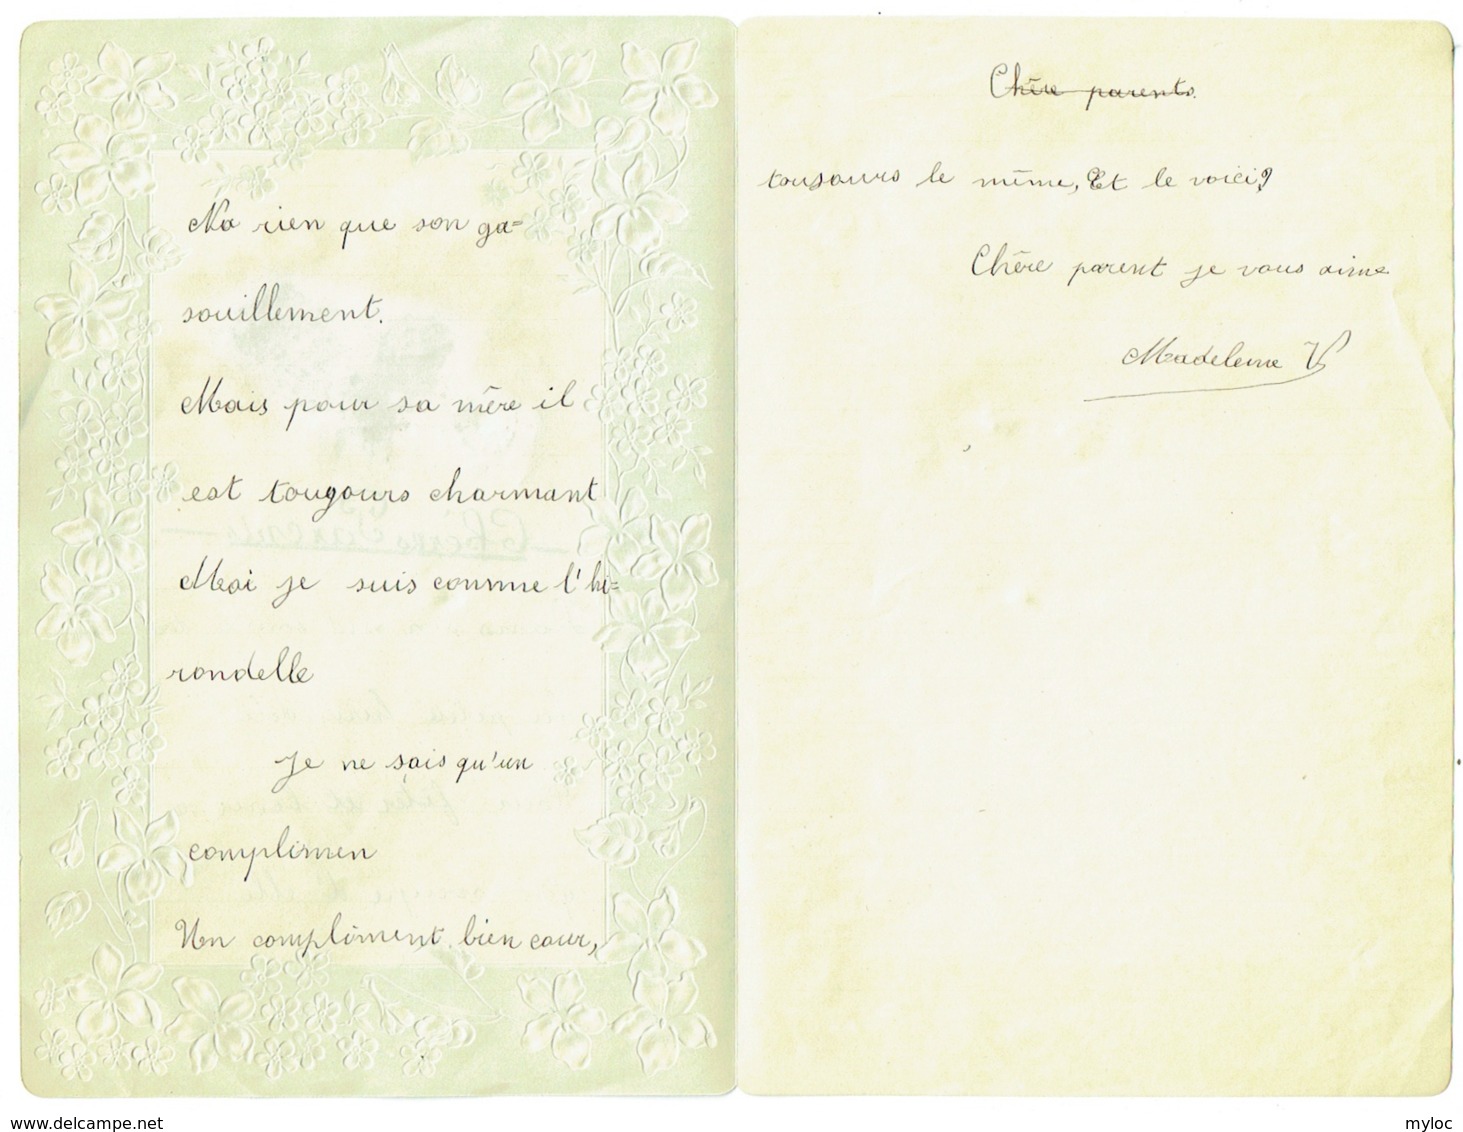 Na rien que son ga=
souillement.
Mais pour sa mère il
est tougours charmant
Moi je suis comme l'hi=
rondelle
Je ne sais qu'un
complimen
Un compliment bien cour,
Chère parents.
toujours le même, Et le voici?
Chère parent je vous aime
Madeleine V
delcampe.net
myloc